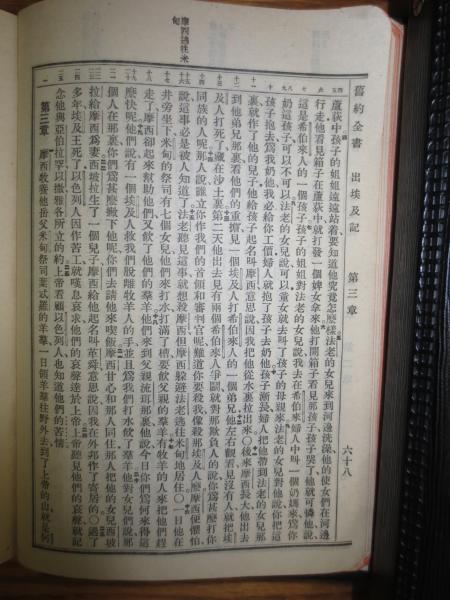 舊約全書 出埃及記 第三章 六十八
摩西逃往米甸
蘆荻中孩子的姐姐遠遠站着要知道他究竟怎麼樣法老的女兒來到河邊洗澡他的使女們在河邊
行走他看見箱子在蘆荻中就打發一個婢女拿來他打開箱子看見那孩子孩子哭了他就可憐他說
這是希伯來人的一個孩子孩子的姐姐對法老的女兒說我去在希伯來人中叫一個奶媽來爲你
奶這孩子可以不可以法老的女兒說可以童女就去叫了孩子的母親來法老的女兒對他說你把這
孩子抱去爲我奶他我必給你工價婦人就抱了孩子去奶他孩子漸長婦人把他帶到法老的女兒那
裏就作了他的兒子他給孩子起名叫摩西意思說因我把他從水裏拉出來○後來摩西長大他出去
到他弟兄那裏看他們的重擔見一個埃及人打希伯來人的一個弟兄他左右觀看見沒有人就把埃
及人打死了藏在沙土裏第二天他出去見有兩個希伯來人爭鬬就對那欺負人的說你爲甚麼打你
同族的人呢那人說誰立你作我們的首領和審判官呢難道你要殺我像殺那埃及人麼摩西便懼怕
說這事必是被人知道了法老聽見這事就想殺摩西但摩西躱避法老逃往米甸地居住○一日他在
井旁坐下米甸的祭司有七個女兒他們來打水打滿了槽要飲父親的羣羊有牧羊的人來把他們趕
走了摩西卻起來幫助他們又飲了他們的羣羊他們來到父親流珥那裏他說今日你們爲何來得這
麼快呢他們說有一個埃及人救我們脫離牧羊人的手並且爲我們打水飲了羣羊他對女兒們說那
個人在那裏你們爲甚麼撇下他呢你們去請他來喫飯摩西甘心和那人同住那人把他的女兒西坡
拉給摩西爲妻西坡拉生了一個兒子摩西給他起名叫革舜意思說因我在外邦作了寄居的○過了
多年埃及王死了以色列人因作苦工就嘆息哀求他們的哀聲達於上帝上帝聽見他們的哀聲就記
念他與亞伯拉罕以撒雅各所立的約上帝看顧以色列人也知道他們的苦情
第三章 摩西牧養他岳父米甸祭司葉忒羅的羊羣一日領羊羣往野外去到了上帝的山就是何